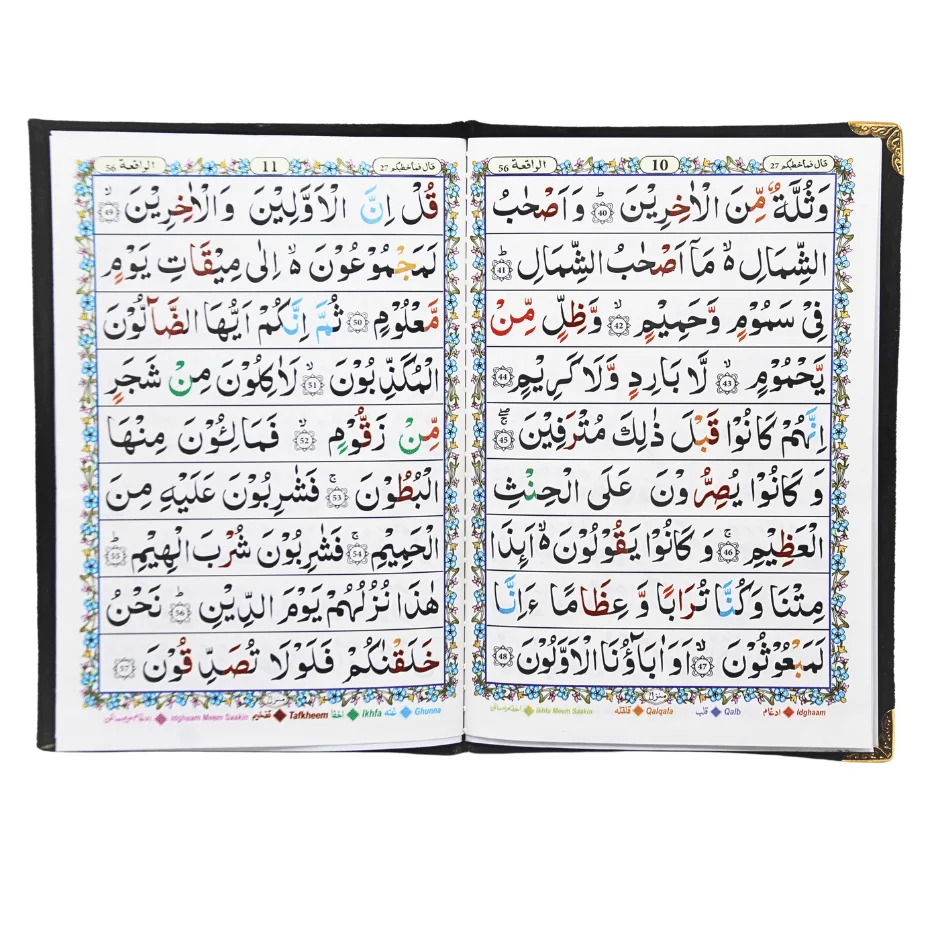 قال فما خطبكم 27
10
الواقعة 56
وَثُلَّةٌ مِّنَ الْاٰخِرِيْنَ ؕ 40 وَاَصْحٰبُ
الشِّمَالِ ۙ مَاۤ اَصْحٰبُ الشِّمَالِ ؕ 41
فِىْ سَمُوْمٍ وَّحَمِيْمٍ ۙ 42 وَّظِلٍّ مِّنْ
يَّحْمُوْمٍ ۙ 43 لَّا بَارِدٍ وَّلَا كَرِيْمٍ 44
اِنَّهُمْ كَانُوْا قَبْلَ ذٰلِكَ مُتْرَفِيْنَ ۚۖ 45
وَ كَانُوْا يُصِرُّوْنَ عَلَى الْحِنْثِ
الْعَظِيْمِ ۚ 46 وَ كَانُوْا يَقُوْلُوْنَ ۙ اَئِذَا
مِتْنَا وَكُنَّا تُرَابًا وَّ عِظَامًا ءَاِنَّا
لَمَبْعُوْثُوْنَ ۙ 47 اَوَاٰبَآؤُنَا الْاَوَّلُوْنَ 48
منزل
Idghaam ادغام Qalb قلب Qalqala قلقله Ikhfa Meem Saakin
قال فما خطبكم 27
11
الواقعة 56
قُلْ اِنَّ الْاَوَّلِيْنَ وَالْاٰخِرِيْنَ ۙ 49
لَمَجْمُوْعُوْنَ ۙ اِلٰى مِيْقَاتِ يَوْمٍ
مَّعْلُوْمٍ 50 ثُمَّ اِنَّكُمْ اَيُّهَا الضَّآلُّوْنَ
الْمُكَذِّبُوْنَ ۙ 51 لَاٰكِلُوْنَ مِنْ شَجَرٍ
مِّنْ زَقُّوْمٍ ۙ 52 فَمَالِئُوْنَ مِنْهَا
الْبُطُوْنَ ۚ 53 فَشٰرِبُوْنَ عَلَيْهِ مِنَ
الْحَمِيْمِ ۚ 54 فَشٰرِبُوْنَ شُرْبَ الْهِيْمِ ؕ 55
هٰذَا نُزُلُهُمْ يَوْمَ الدِّيْنِ ؕ 56 نَحْنُ
خَلَقْنٰكُمْ فَلَوْلَا تُصَدِّقُوْنَ 57
منزل
Ghunna غنه Ikhfa اخفا Tafkheem تفخيم Idghaam Meem Saakin